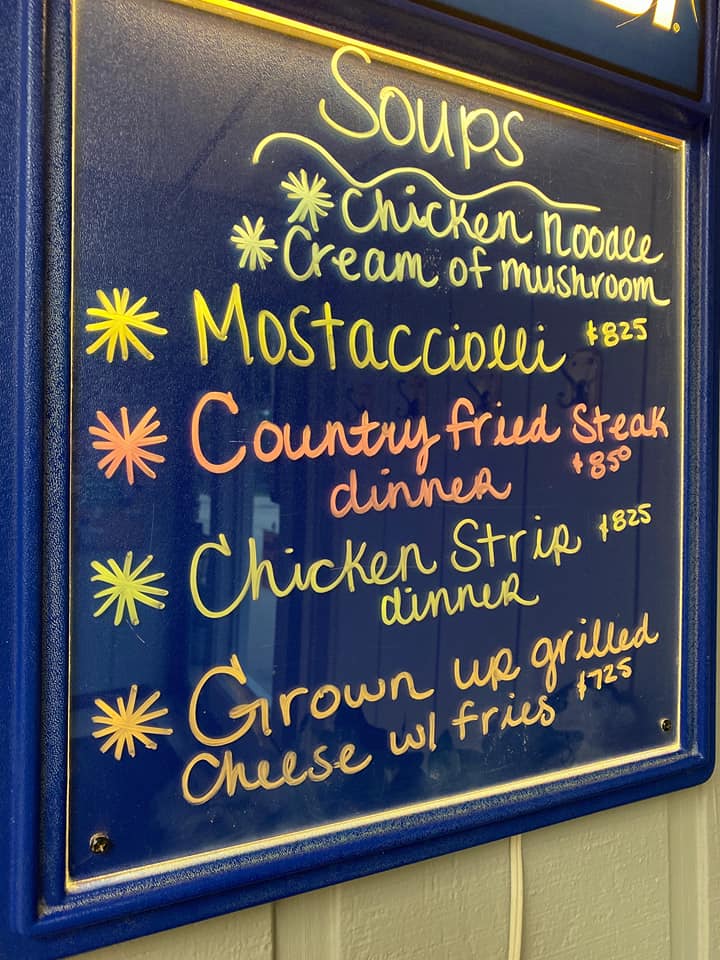 Soups
Chicken noodle
Cream of mushroom
Mostacciolli $825
Country fried Steak
dinner $850
Chicken Strip $825
dinner
Grown up grilled
cheese w/ fries $725